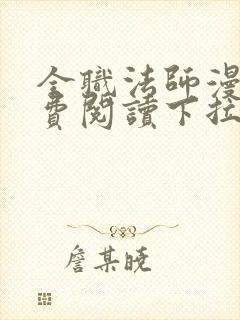 全職法師漫
費閱讀下拉
詹某曉